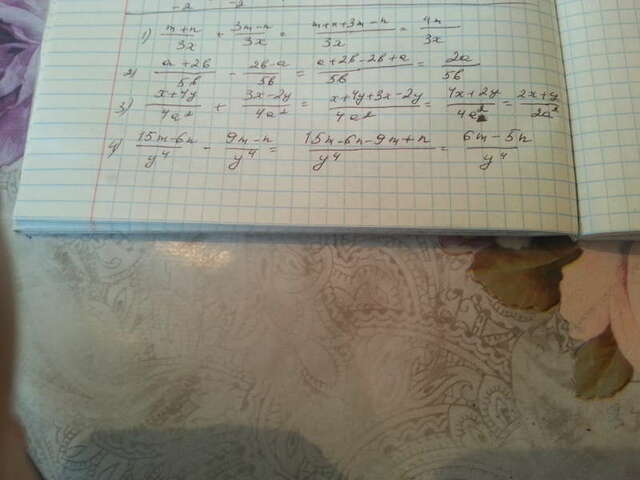 1) \frac{m+n}{3x} + \frac{3m-n}{3x} = \frac{m+n+3m-n}{3x} = \frac{4m}{3x}
2) \frac{a+2b}{5b} - \frac{2b-a}{5b} = \frac{a+2b-2b+a}{5b} = \frac{2a}{5b}
3) \frac{x+4y}{4a^2} + \frac{3x-2y}{4a^2} = \frac{x+4y+3x-2y}{4a^2} = \frac{4x+2y}{4a^2} = \frac{2x+y}{2a^2}
4) \frac{15m-6n}{y^4} - \frac{9m-n}{y^4} = \frac{15m-6n-9m+n}{y^4} = \frac{6m-5n}{y^4}